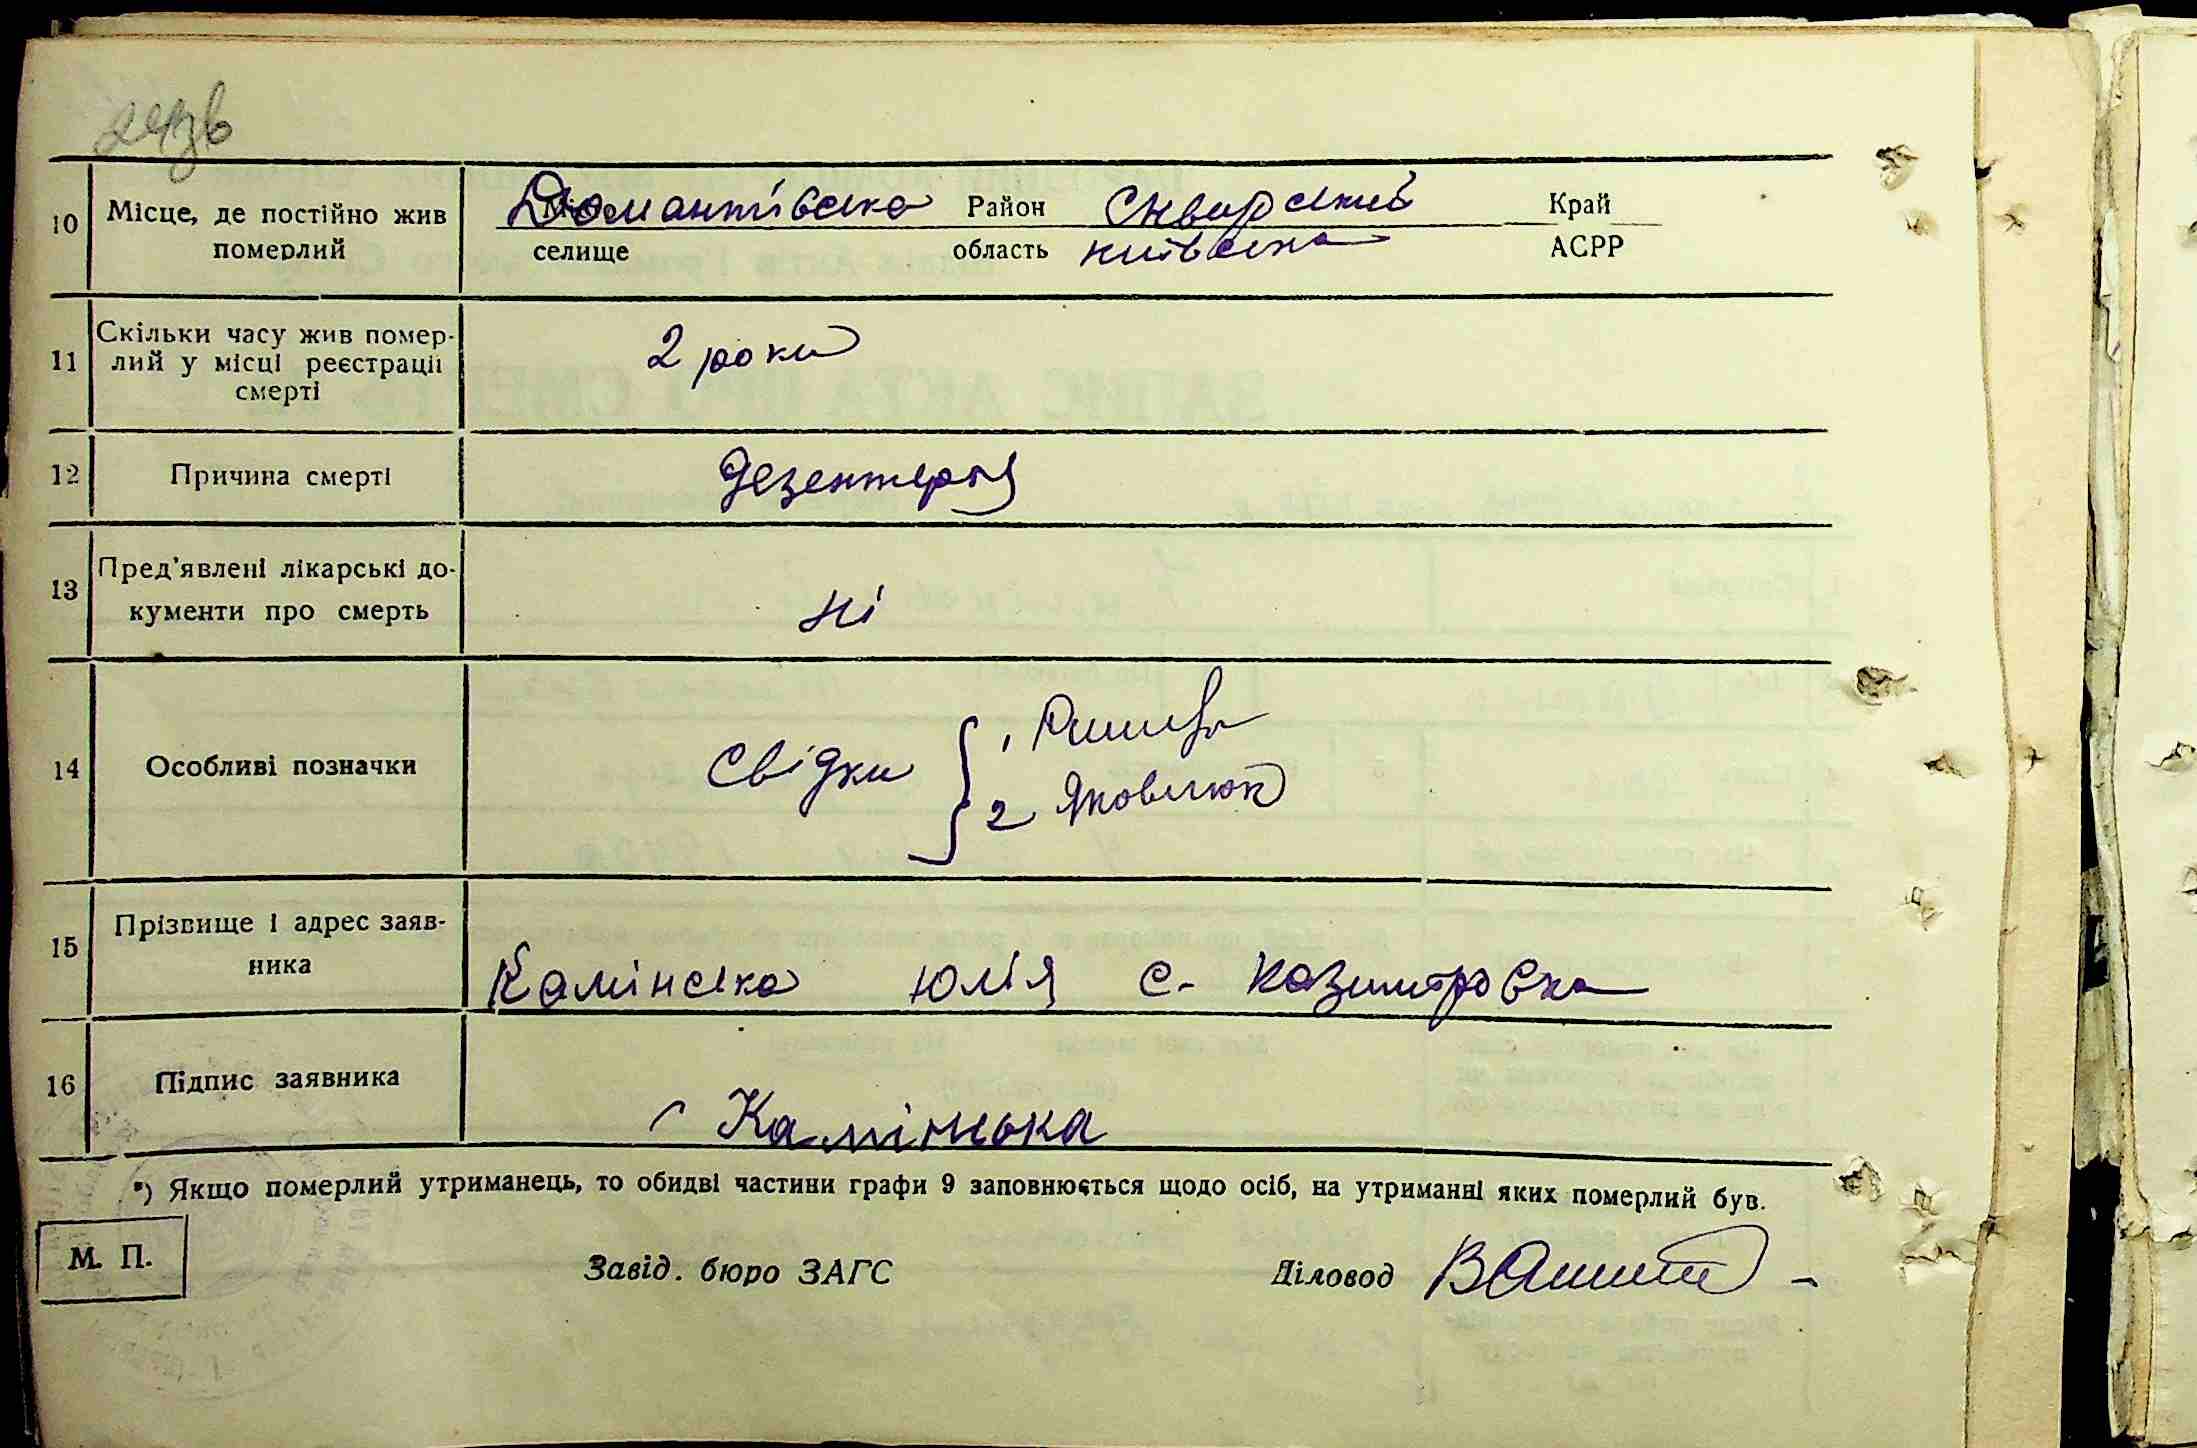 243в
10 Місце, де постійно жив померлий Домантівська Район Сквирский Край
селище область київська АСРР
11 Скільки часу жив помер-
лий у місці реєстрації
смерті
2 роки
12 Причина смерті Дезентерія
13 Пред'явлені лікарські до-
кументи про смерть
ні
14 Особливі позначки Свідки 1
2 Яковлюк
15 Прізвище і адрес заяв-
ника
Камінська Юлія с. Казимировка
16 Підпис заявника Камінська
*) Якщо померлий утриманець, то обидві частини графи 9 заповнюється щодо осіб, на утриманні яких померлий був.
М. П. Завід. бюро ЗАГС Діловод